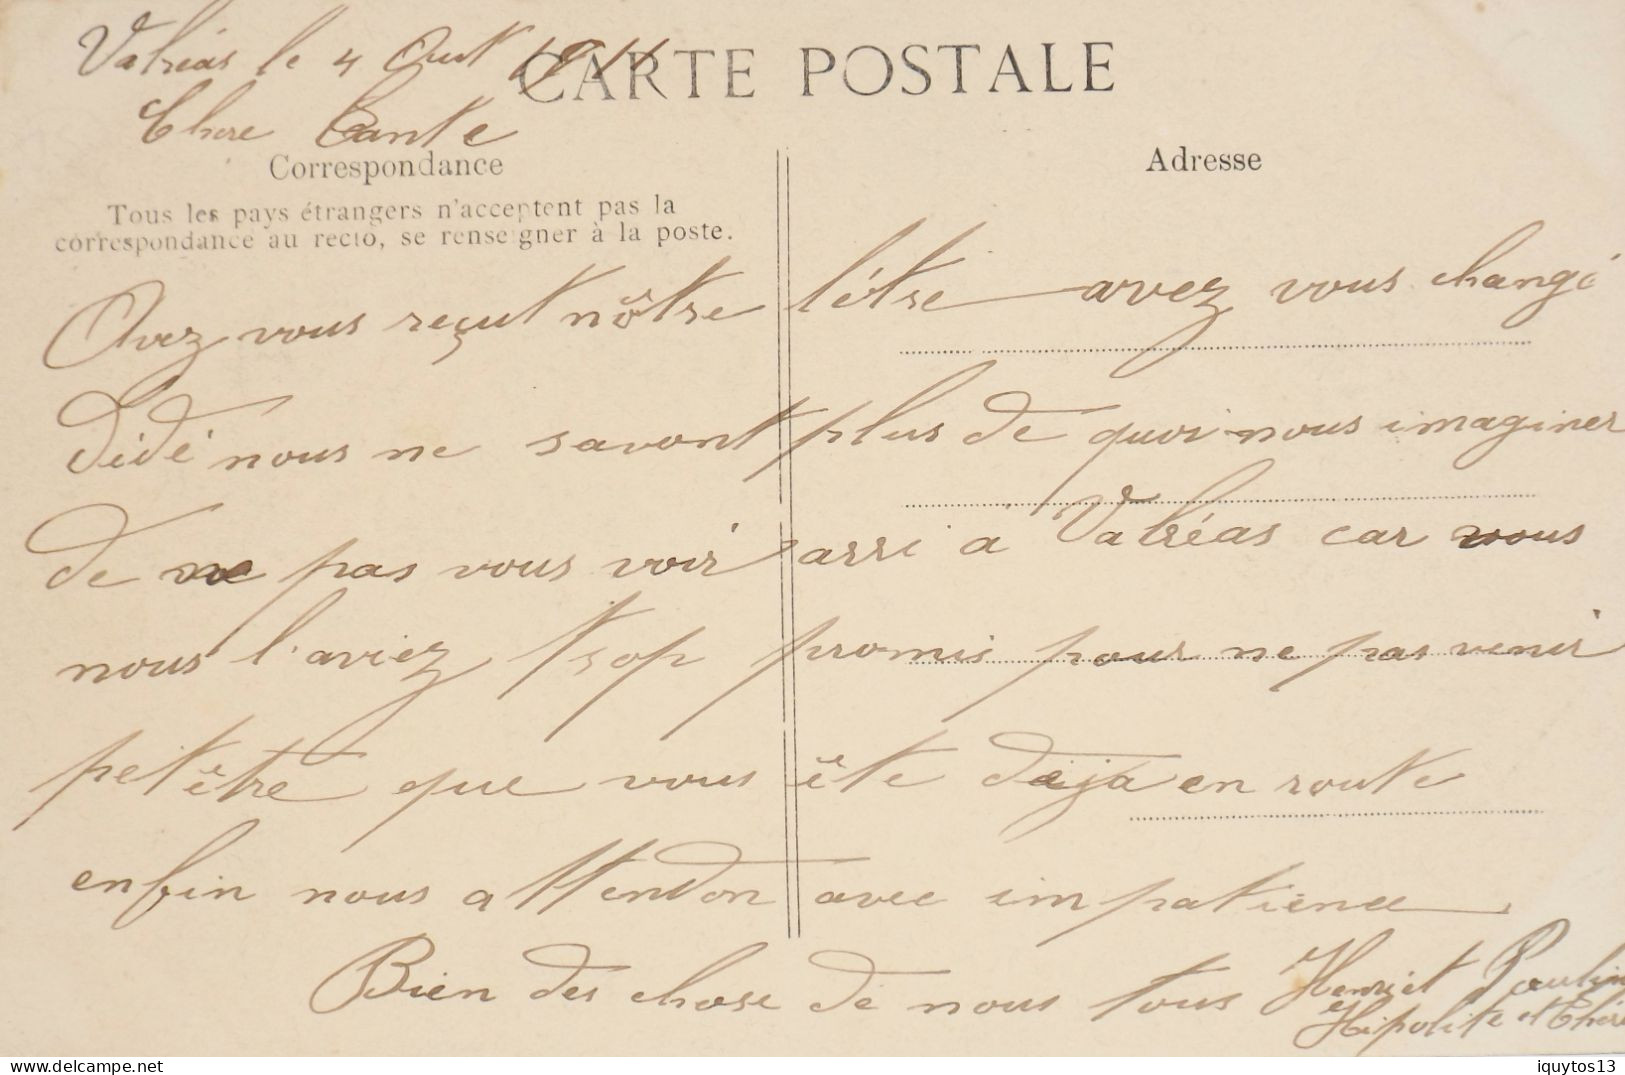 Valréas le 4 Out 1911
CARTE POSTALE
Chere Tante
Correspondance
Adresse
Tous les pays étrangers n'acceptent pas la
correspondance au recto, se renseigner à la poste.
Avez vous reçut nôtre l'étre avez vous changé
didé nous ne savont plus de quoi nous imaginer
de ne pas vous voir arri a Valréas car vous
nous l'aviez trop promis pour ne pas venir
petêtre que vous ête deja en route
enfin nous attendon avec impatience
Bien des chose de nous tous Henriet Paulin
Hipolite et
delcampe.net
iquytos13